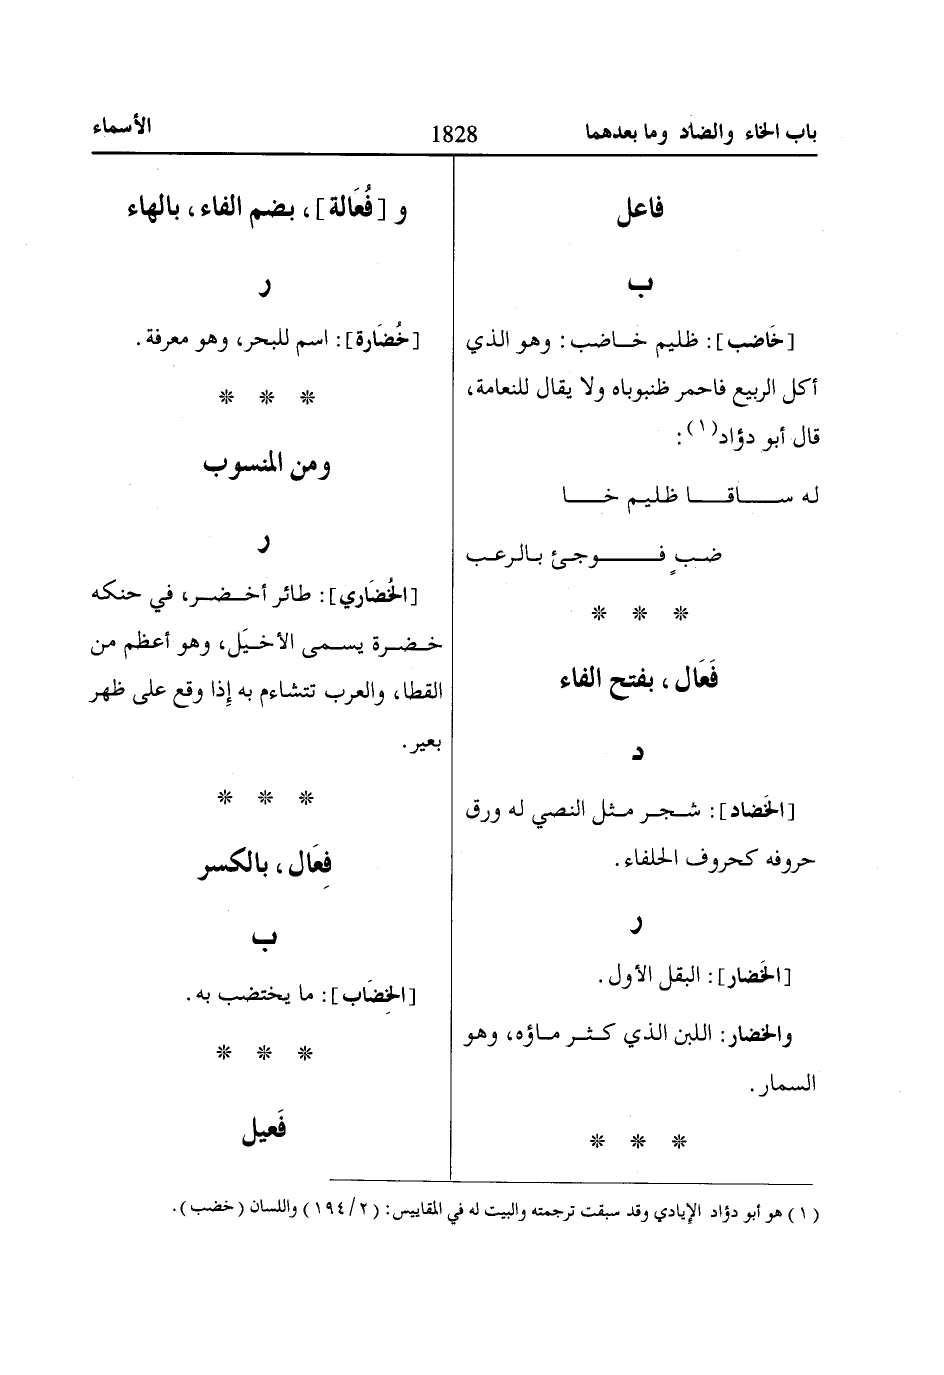 باب الخاء والضاد وما بعدهما
1828
الأسماء
فاعل
ب
[خَاضب]: ظليم خاضب: وهو الذي
أكل الربيع فاحمر ظنبوباه ولا يقال للنعامة،
قال أبو دؤاد(١):
له ساقا ظليم خا
ضبٍ فوجئ بالرعب
* * *
فَعَال، بفتح الفاء
د
[الخَضاد]: شجر مثل النصي له ورق
حروفه كحروف الحلفاء.
ر
[الخَضار]: البقل الأول.
والخضار: اللبن الذي كثر ماؤه، وهو
السمار.
* * *
و [فُعَالة]، بضم الفاء، بالهاء
ر
[خُضَارة]: اسم للبحر، وهو معرفة.
* * *
ومن المنسوب
ر
[الخُضَاري]: طائر أخضر، في حنكه
خضرة يسمى الأخيَل، وهو أعظم من
القطا، والعرب تتشاءم به إذا وقع على ظهر
بعير.
* * *
فِعَال، بالكسر
ب
[الخِضَاب]: ما يختضب به.
* * *
فَعيل
(١) هو أبو دؤاد الإيادي وقد سبقت ترجمته والبيت له في المقاييس: (٢/١٩٤) واللسان (خضب).